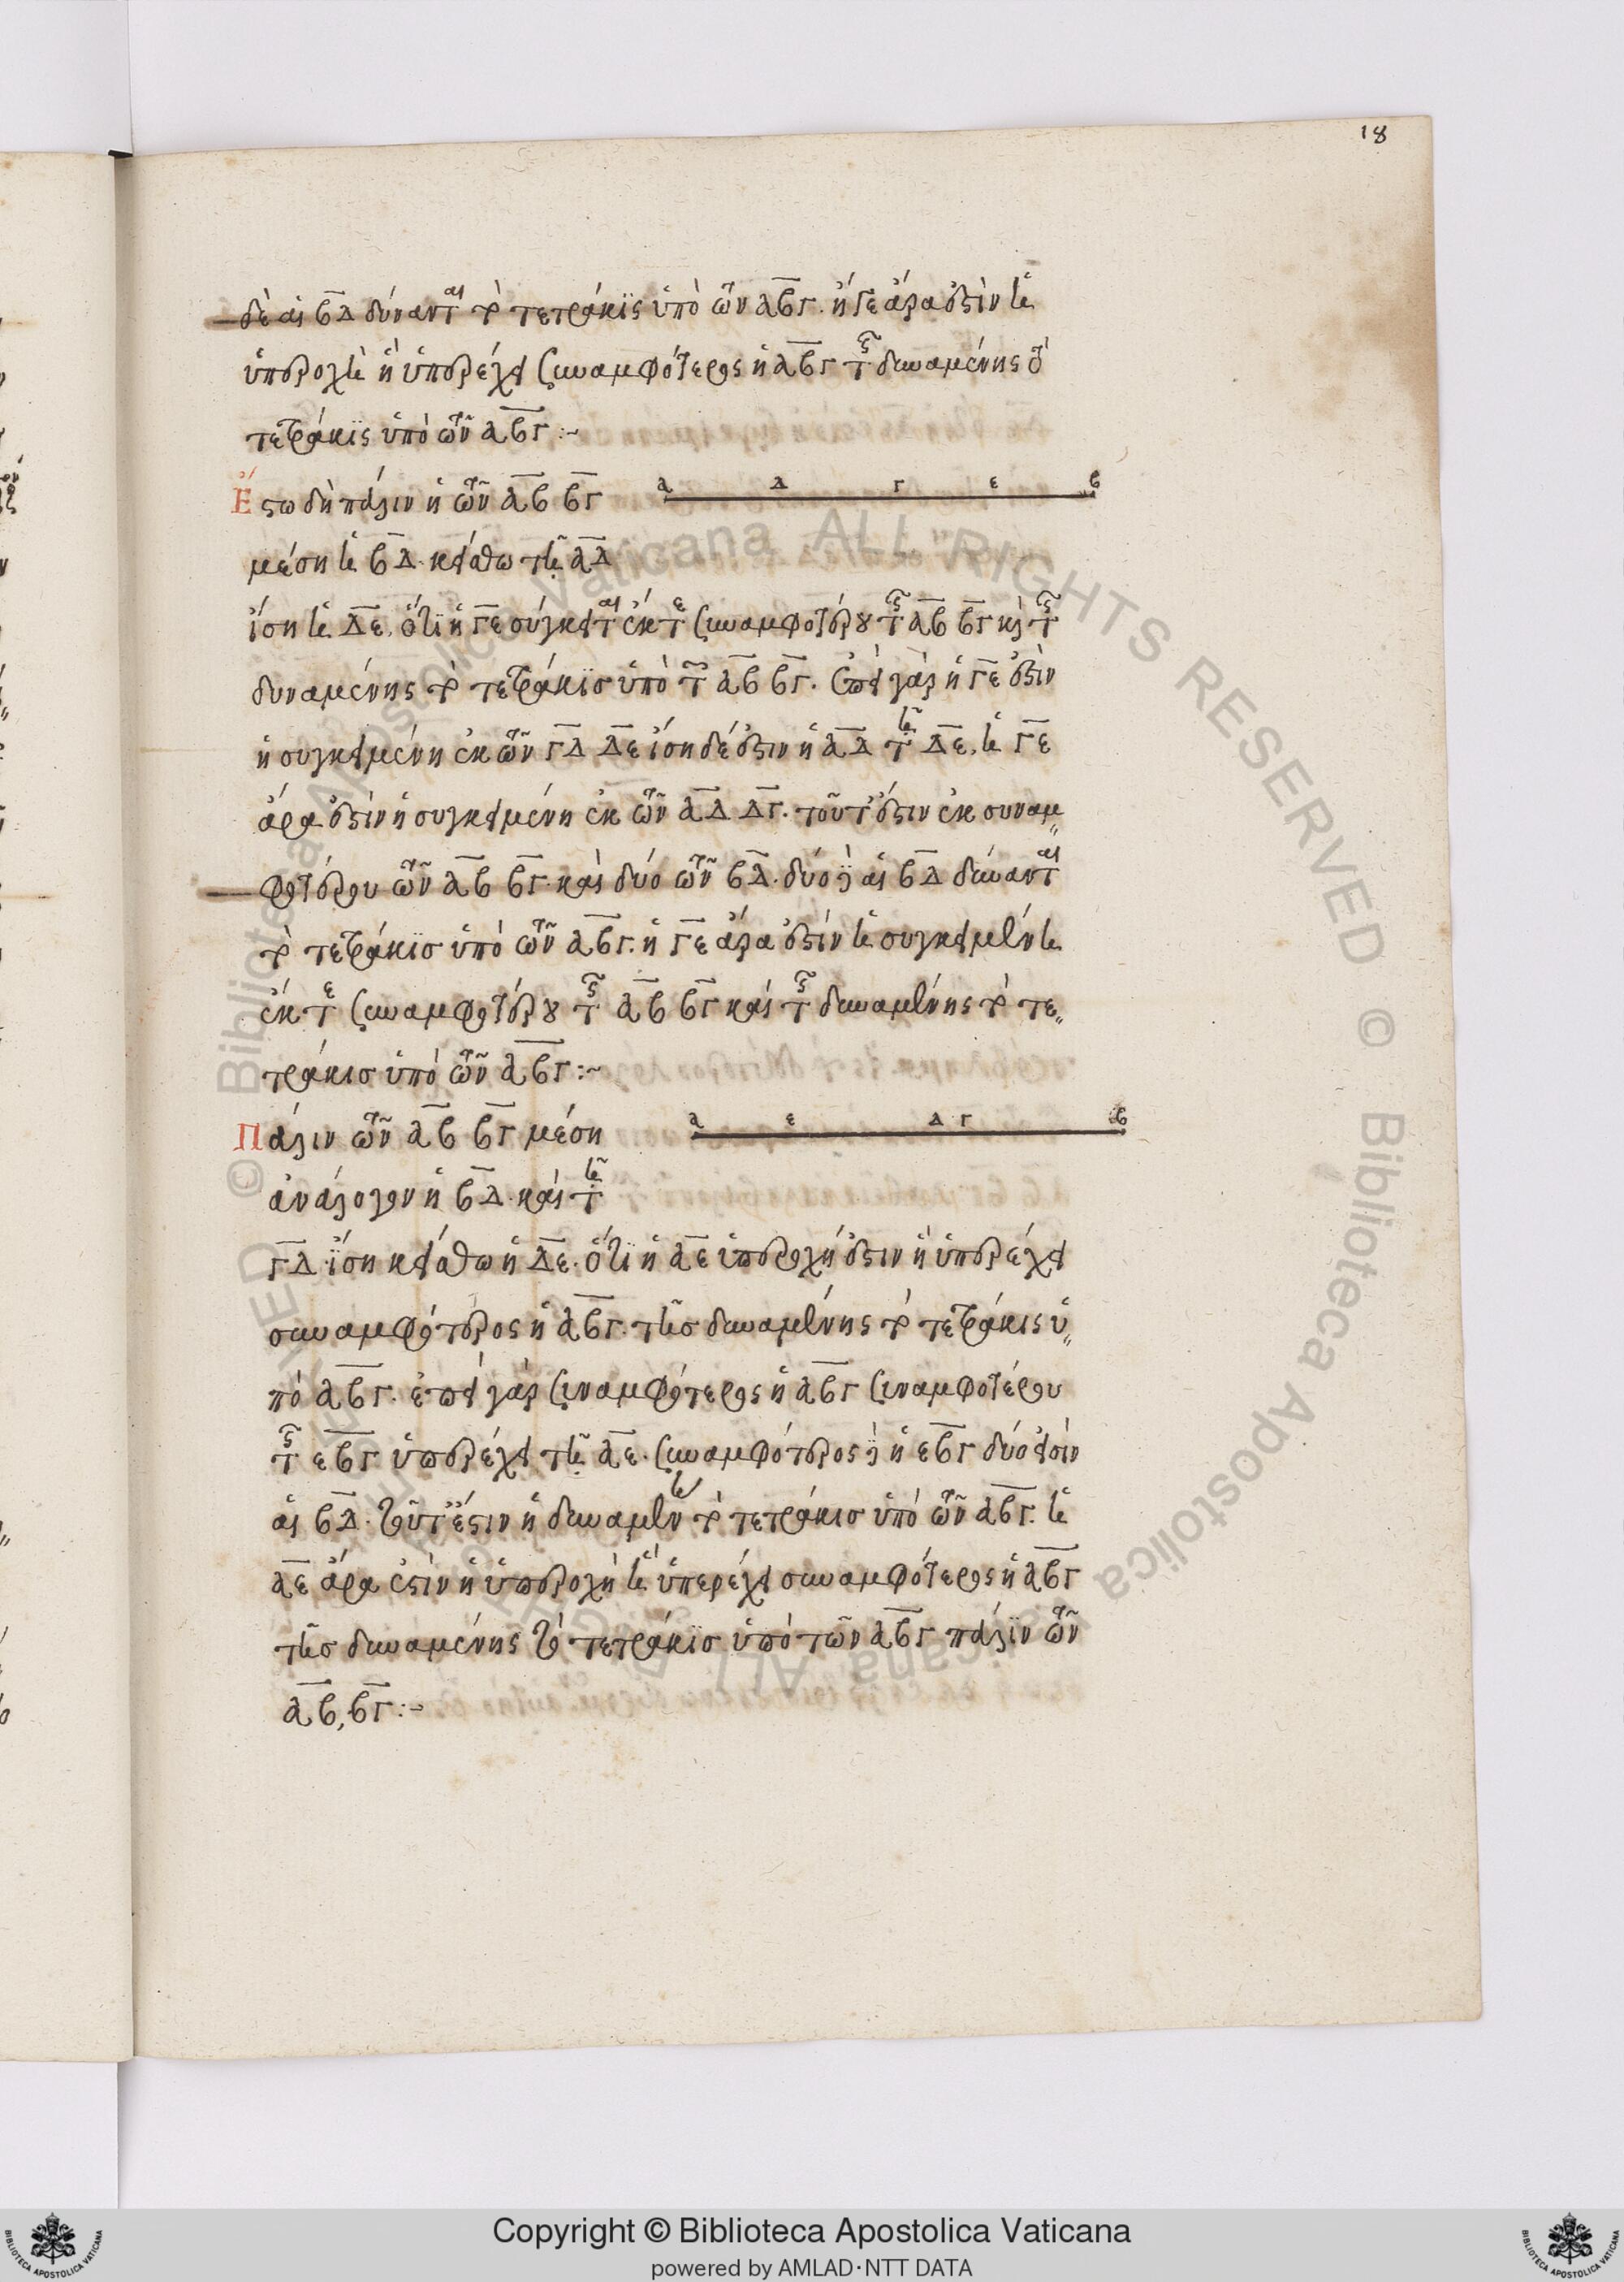 18
δὲ αἱ ΒΔ δύνανται τὸ τετράκϊς ὑπὸ τῶν ΑΒΓ. ἡ ΓΕ ἄρα ἐστὶν ἡ
ὑπεροχὴ ᾗ ὑπερέχει συναμφότερος ἡ ΑΒΓ τῆς δυναμένης τὸ
τετράκϊς ὑπὸ τῶν ΑΒΓ :~
Ἔστω δὴ πάλιν ἡ τῶν ΑΒ ΒΓ
Α Δ Γ Ε Β
μέση ἡ ΒΔ. κείσθω τῇ ΑΔ
ἴση ἡ ΔΕ. ὅτι ἡ ΓΕ σύγκειται ἐκ τε συναμφοτέρου τῆς ΑΒ ΒΓ καὶ τῆς
δυναμένης τὸ τετράκϊσ ὑπὸ τῶν ΑΒ ΒΓ. ἐπεὶ γὰρ ἡ ΓΕ ἐστὶν
ἡ συγκειμένη ἐκ τῶν ΓΔ ΔΕ ἴση δέ ἐστιν ἡ ΑΔ τῇ ΔΕ. ἡ ΓΕ
ἄρα ἐστὶν ἡ συγκειμένη ἐκ τῶν ΑΔ ΔΓ. τοῦτ' ἔστιν ἐκ συναμ
φοτέρου τῶν ΑΒ ΒΓ. καὶ δύο τῶν ΒΔ. δύο δὲ αἱ ΒΔ δύνανται
τὸ τετράκϊσ ὑπὸ τῶν ΑΒΓ. ἡ ΓΕ ἄρα ἐστὶν ἡ συγκειμένη
ἐκ τε συναμφοτέρου τῆς ΑΒ ΒΓ καὶ τῆς δυναμένης τὸ τε
τράκισ ὑπὸ τῶν ΑΒΓ :~
Πάλιν τῶν ΑΒ ΒΓ μέση
Α Ε Δ Γ Β
ἀνάλογον ἡ ΒΔ. καὶ τῇ
ΓΔ ἴση κείσθω ἡ ΔΕ. ὅτι ἡ ΑΕ ὑπεροχή ἐστιν ᾗ ὑπερέχει
συναμφότερος ἡ ΑΒΓ. τῆσ δυναμένης τὸ τετράκις ὑ
πὸ ΑΒΓ. ἐπεὶ γὰρ συναμφότερος ἡ ΑΒΓ συναμφοτέρου
τῆς ΕΒΓ ὑπερέχει τῇ ΑΕ. συναμφότερος δὲ ἡ ΕΒΓ δύο εἰσὶν
αἱ ΒΔ. τοῦτ' ἔστιν ἡ δυναμένη τὸ τετράκισ ὑπὸ τῶν ΑΒΓ. ἡ
ΑΕ ἄρα ἐστὶν ἡ ὑπεροχὴ ᾗ ὑπερέχει συναμφότερος ἡ ΑΒΓ
τῆσ δυναμένης τὸ τετράκϊσ ὑπὸ τῶν ΑΒΓ πάλϊν τῶν
ΑΒ, ΒΓ :~
© Biblioteca Apostolica Vaticana ALL RIGHTS RESERVED © Biblioteca Apostolica Vaticana ALL RIGHTS RESERVED
Copyright © Biblioteca Apostolica Vaticana
powered by AMLAD·NTT DATA
BIBLIOTECA APOSTOLICA VATICANA
BIBLIOTECA APOSTOLICA VATICANA